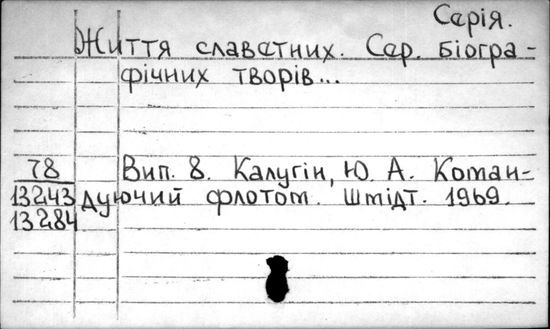 Серія.
Життя славетних. Сер. біогра-
фічних творів...
78 Вип. 8. Калугін, Ю. А. Коман-
13243 дуючий флотом. Шмідт. 1969.
13284